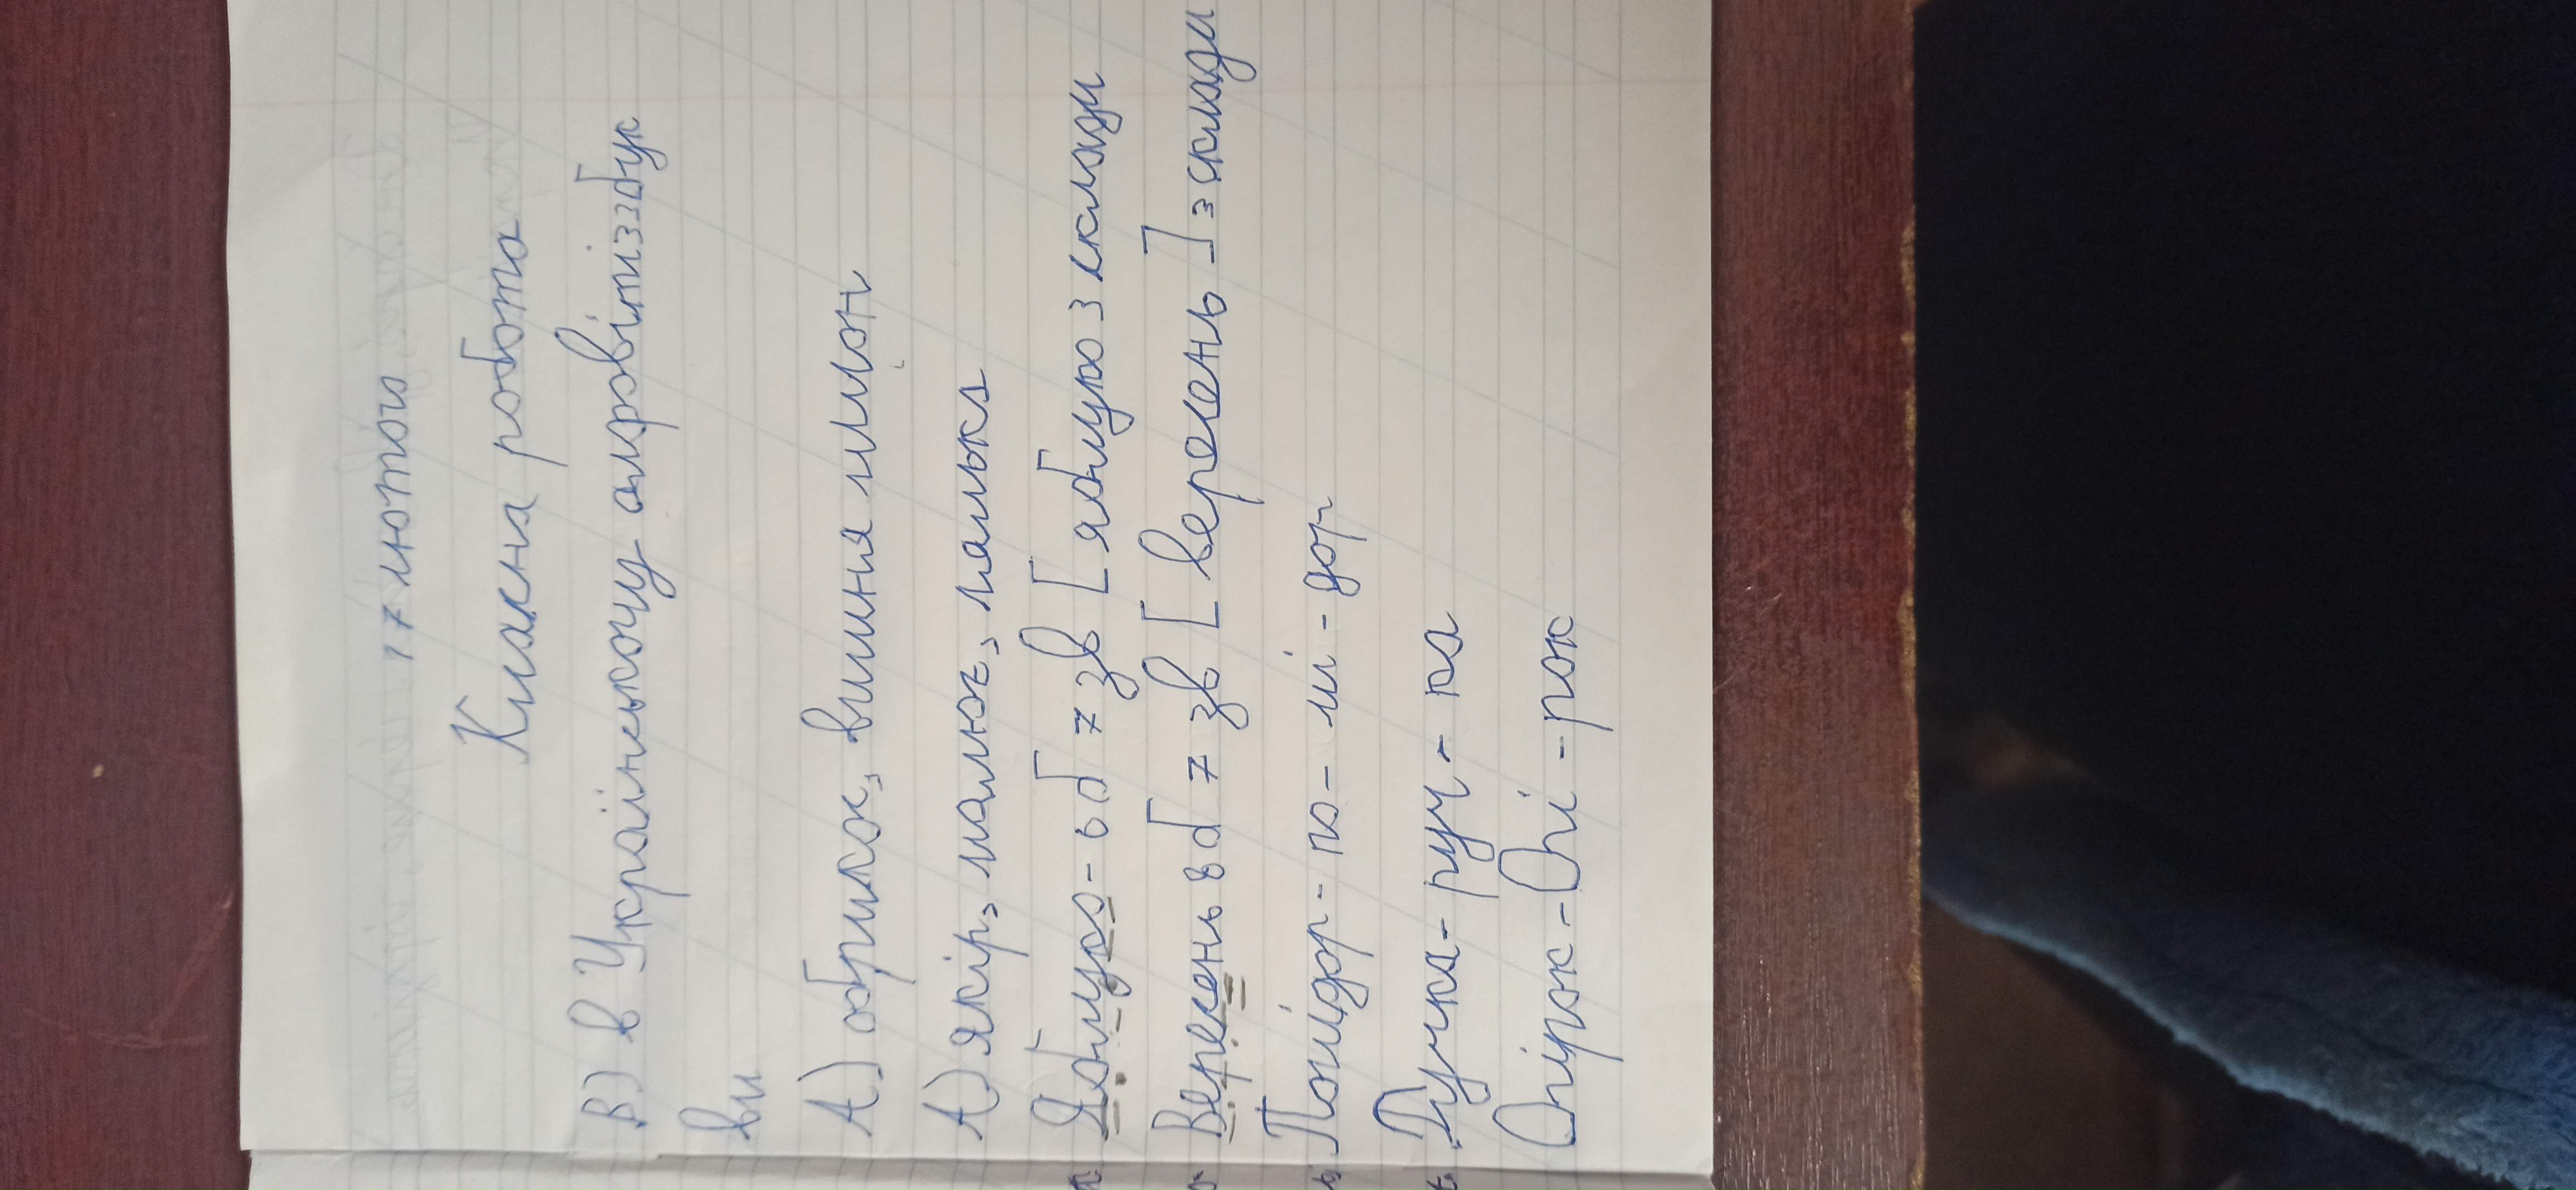 17 лютого
Класна робота
В) в Українському алфовіті 33 бук
ви
А) обрикос, вишня лимон
А) якір, малюк, лялька
Яблуко - 6 б 7 зв [яблуко 3 склади
Вересень 8 б 7 зв [вересень] 3 склади
Помідор - по - мі - дор
Ручка - руч - ка
Огірок - Огі - рок